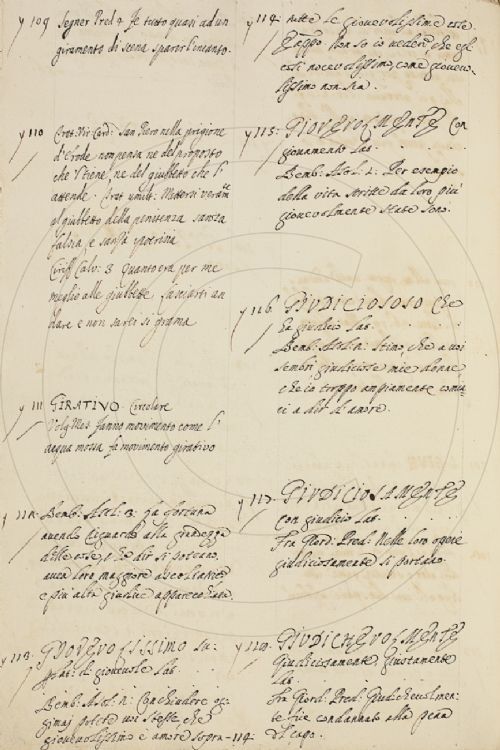 y 109 Segner Pred 4 Fe tutto quasi ad un
giramento di scena sparer l'incanto
y 110 Crot. San Piero nella prigione
d'Erode non pensa ne del proposto
che tiene, ne del giubbetto che l'
attende. Mettersi
al giubbetto della penitenza sanza
falsia, e sanza
Ciriff Calv: 3 Quanto era per me
meglio alle giubbette lasciarti an
dare e non sarei sì grama
y 111 GIRATIVO. Circolare
Volg Mes Fanno movimento come l'
acqua mossa fa movimento girativo
y 112 Bemb: Asol: 3: fortuna
avendo riguardo alla grandezza
delle cose, che dir si poteano,
loro maggiore ascoltatrice
e più alta apparecchiava
y 113 GIOVEVOLISSIMO Su-
di giovevole Lat.
Bemb: Asol: 1: Conchiudere og-
gimai potete voi stesse, che
giovevolissimo è amore sopra - 114:
y 114: tutte le giovevolissime cose
Gran fatto non so io vedere, che egli
così nocevolissimo, come giovevo-
lissimo non sia.
y 115: GIOVEVOLMENTE Con
giovamento Lat.
Bemb: Asol: 2: Per esempio
della vita scritte da loro più
giovevolmente state sono.
y 116 GIUDICIOSOSO Che
ha giudicio Lat.
Bemb: Asol: 1: Stimo, che a voi
sembri giudiciose mie donne,
che io troppo ampiamente comin
ci a dir d'amore.
y 117: GIUDICIOSAMENTE
con giudicio Lat.
Fra Giord: Pred: Nelle loro opere
giudiciosamente si portano.
y 118: GIUDICHEVOLMENTE
Giudiciosamente, Giustamente
Lat.
Fra Giord: Pred: Giudichevolmen-
te fue condannato alla pena